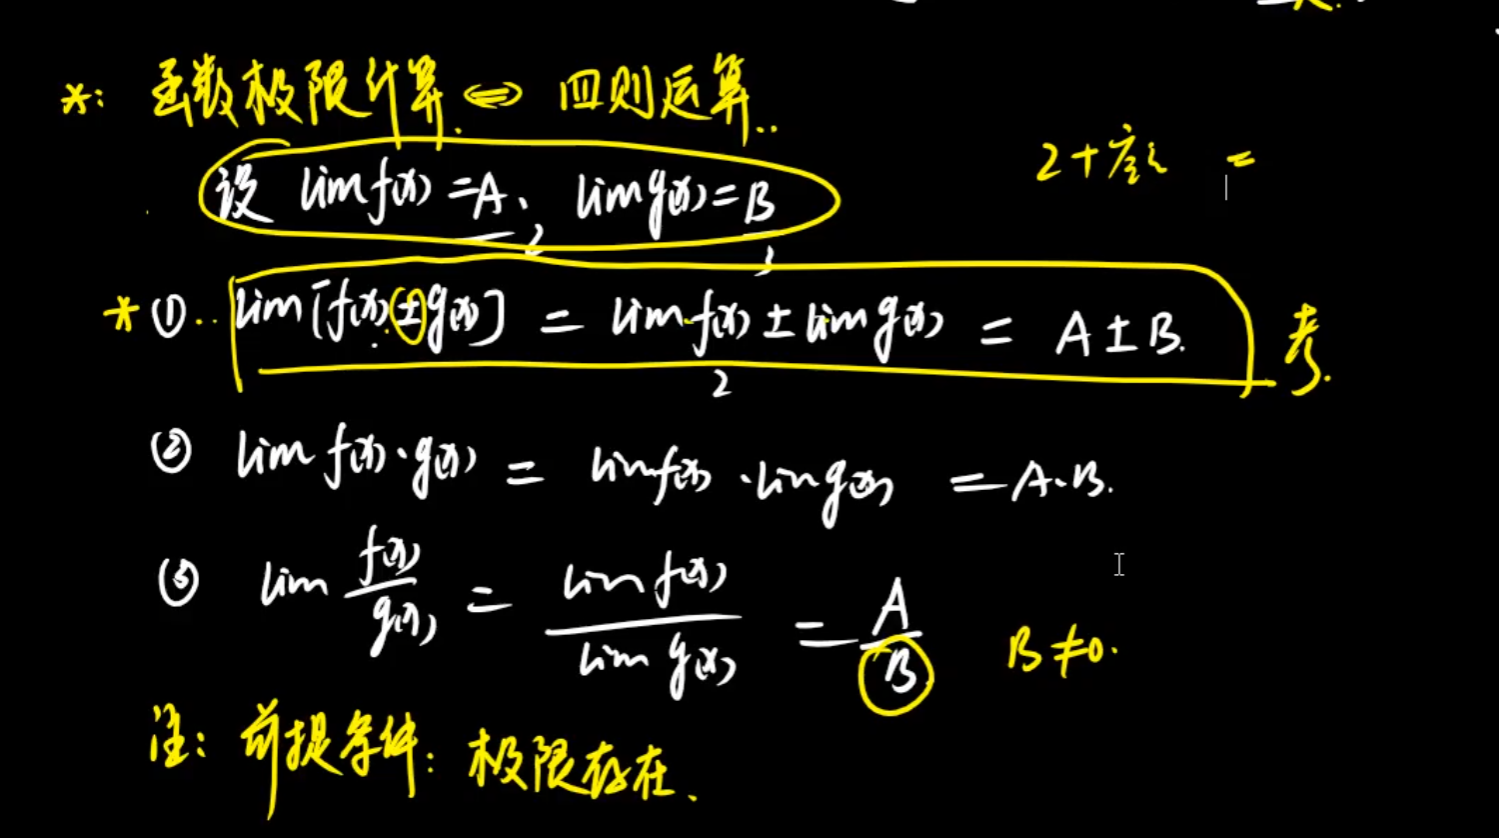 *: 函数极限计算 ⇔ 四则运算..
2+ =
设 lim f(x) = A、 lim g(x) = B
2 3
* ①.. lim [f(x) ± g(x)] = lim f(x) ± lim g(x) = A ± B. 考.
2
② lim f(x)·g(x) = lim f(x) · lim g(x) = A·B.
③ lim f(x)/g(x) = lim f(x)/lim g(x) = A/B B≠0.
注: 前提条件: 极限存在、